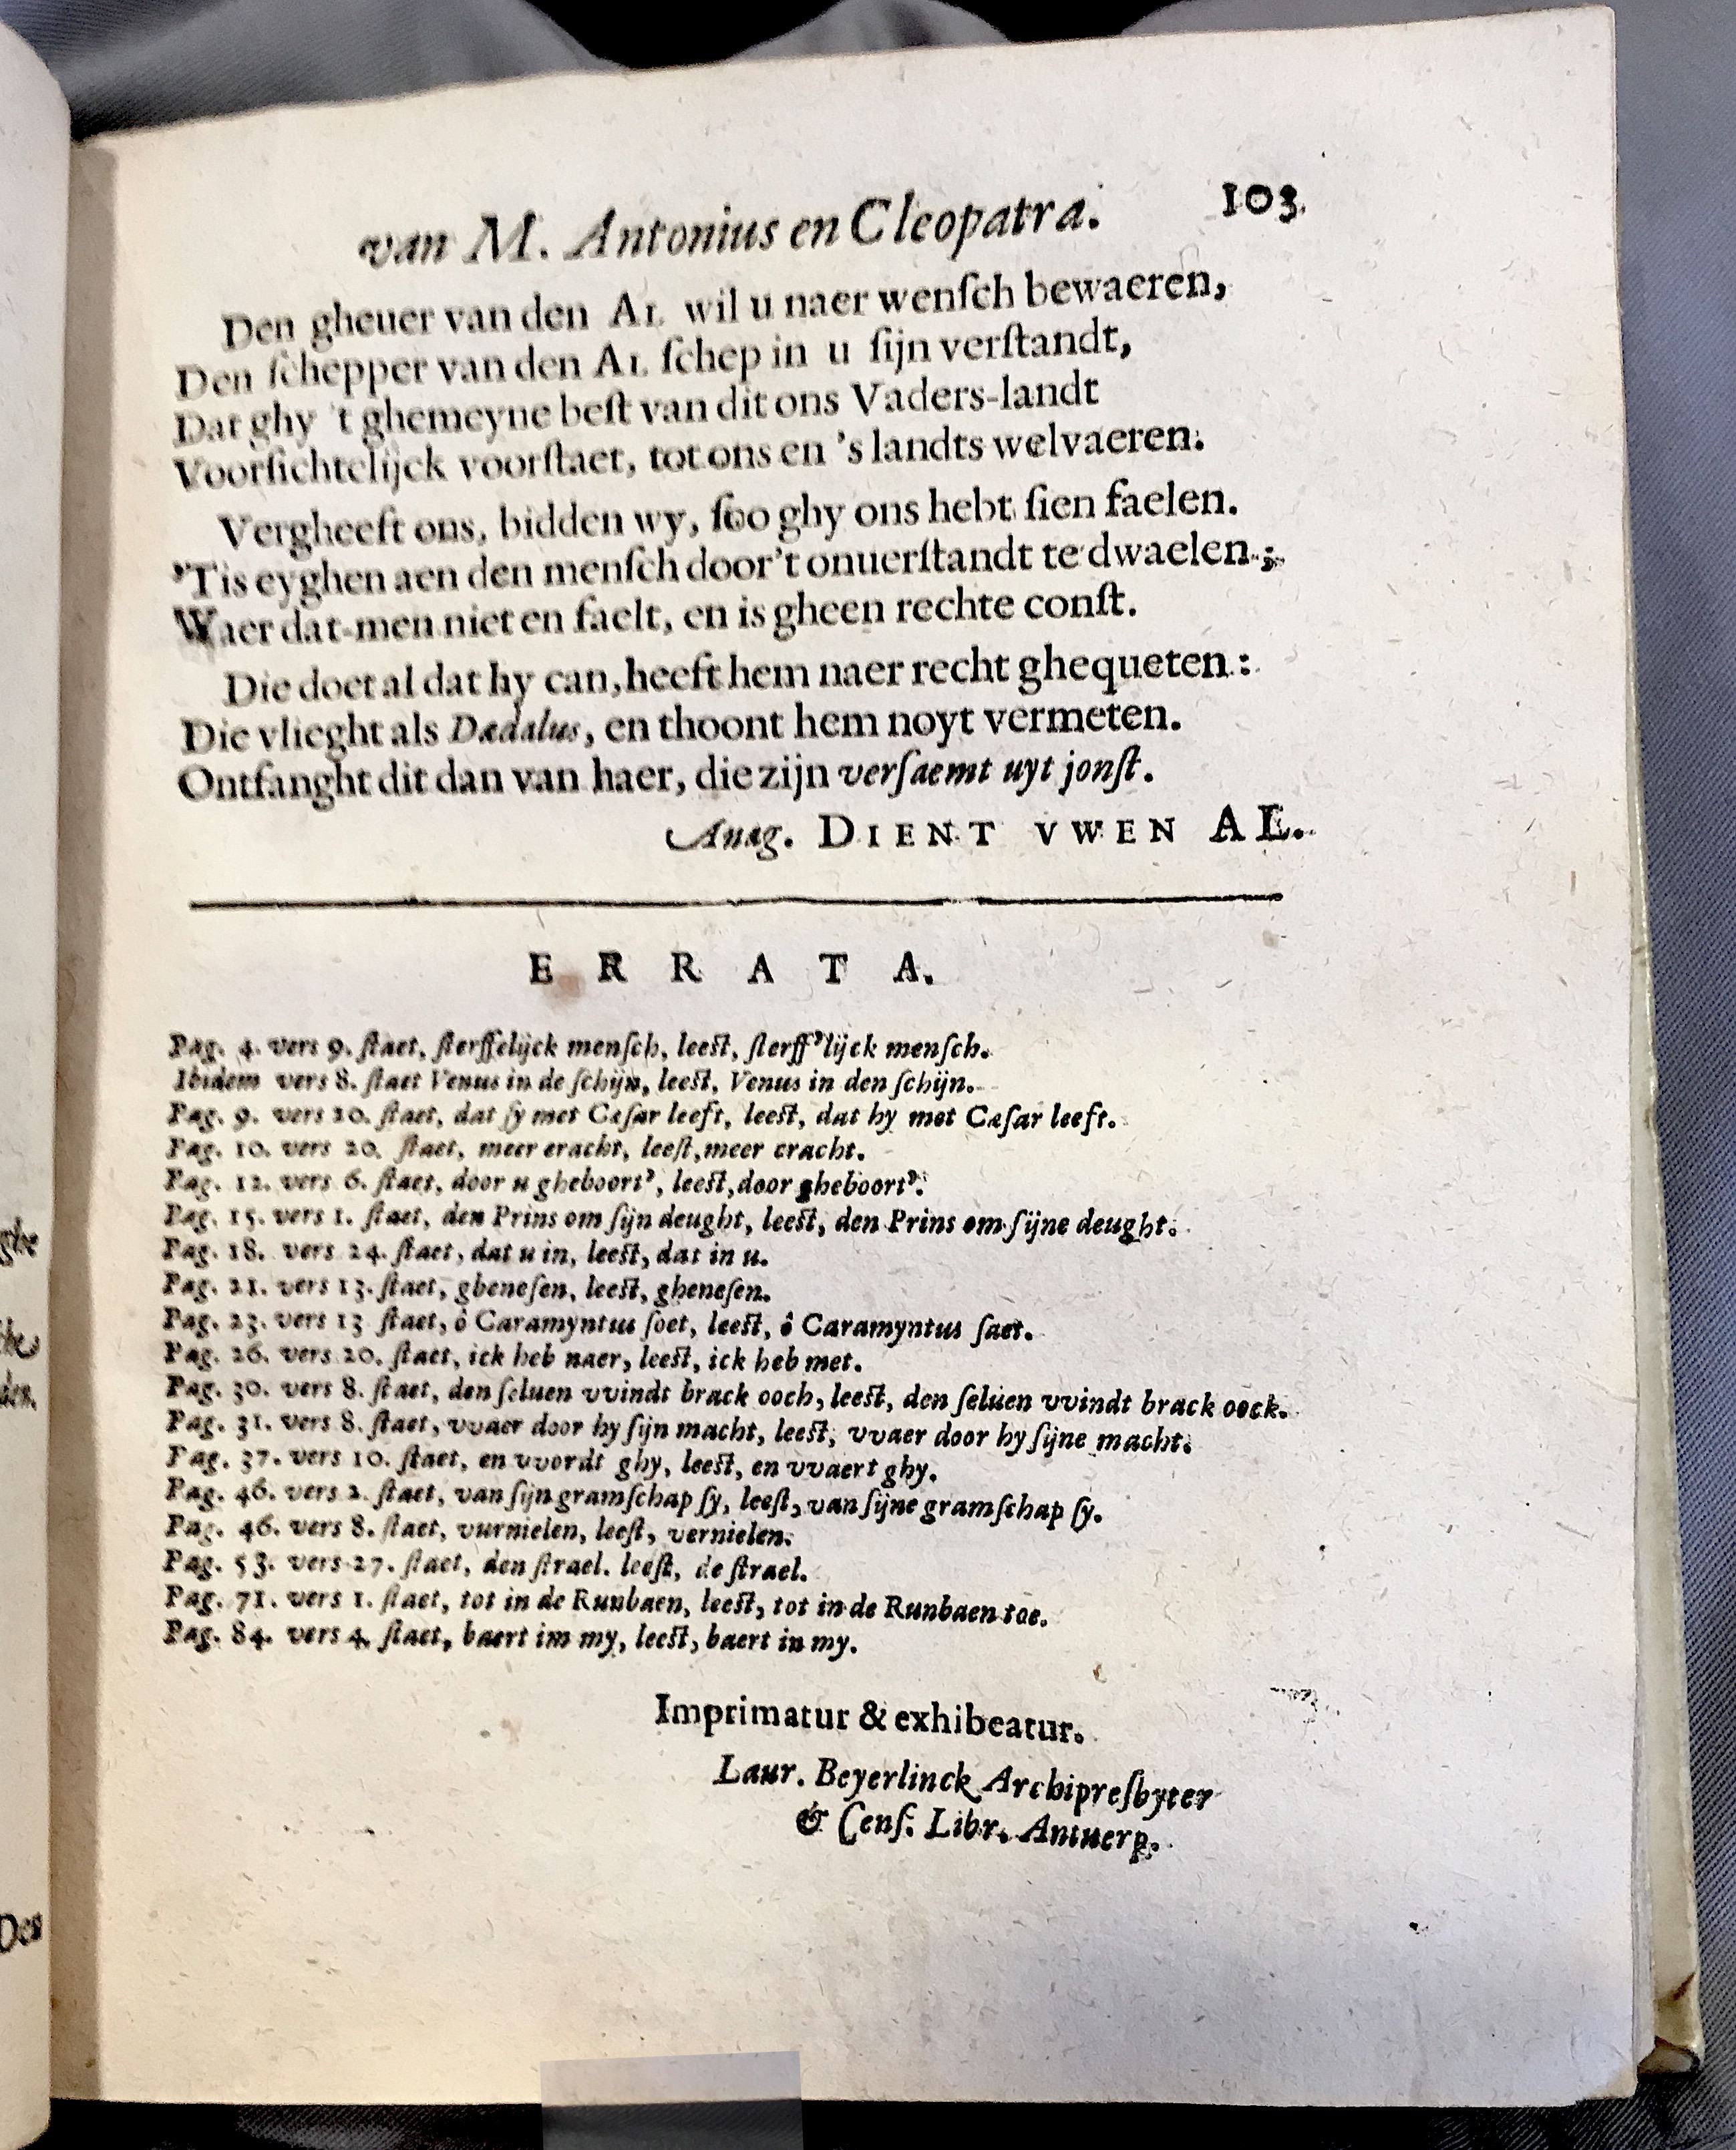 van M. Antonius en Cleopatra. 103.
Den gheuer van den AL wil u naer wenſch bewaeren,
Den ſchepper van den AL ſchep in u ſijn verſtandt,
Dat ghy 't ghemeyne beſt van dit ons Vaders-landt
Voorſichtelijck voorſtaet, tot ons en 's landts welvaeren.
Vergheeft ons, bidden wy, ſoo ghy ons hebt ſien faelen.
'Tis eyghen aen den menſch door't onuerſtandt te dwaelen;
Waer dat-men niet en faelt, en is gheen rechte conſt.
Die doet al dat hy can, heeft hem naer recht ghequeten:
Die vlieght als Dædalus, en thoont hem noyt vermeten.
Ontfanght dit dan van haer, die zijn verſaemt uyt jonſt.
Anag. DIENT VWEN AL.
ERRATA.
Pag. 4. vers 9. ſtaet, ſterffelijck menſch, leeſt, ſterff'lijck menſch.
Ibidem vers 8. ſtaet Venus in de ſchijn, leeſt, Venus in den ſchijn.
Pag. 9. vers 20. ſtaet, dat ſy met Cæſar leeft, leeſt, dat hy met Cæſar leeft.
Pag. 10. vers 20. ſtaet, meer eracht, leeſt, meer cracht.
Pag. 12. vers 6. ſtaet, door u gheboort', leeſt, door gheboort'.
Pag. 15. vers 1. ſtaet, den Prins om ſijn deught, leeſt, den Prins om ſijne deught.
Pag. 18. vers 24. ſtaet, dat u in, leeſt, dat in u.
Pag. 21. vers 13. ſtaet, gbeneſen, leeſt, gheneſen.
Pag. 23. vers 13 ſtaet, ô Caramyntus ſoet, leeſt, ô Caramyntus ſaet.
Pag. 26. vers 20. ſtaet, ick heb naer, leeſt, ick heb met.
Pag. 30. vers 8. ſtaet, den ſeluen vvindt brack ooch, leeſt, den ſeluen vvindt brack oock.
Pag. 31. vers 8. ſtaet, vvaer door hy ſijn macht, leeſt, vvaer door hy ſijne macht.
Pag. 37. vers 10. ſtaet, en vvordt ghy, leeſt, en vvaert ghy.
Pag. 46. vers 2. ſtaet, van ſijn gramſchap ſy, leeſt, van ſijne gramſchap ſy.
Pag. 46. vers 8. ſtaet, vurnielen, leeſt, vernielen.
Pag. 53. vers 27. ſtaet, den ſtrael. leeſt, de ſtrael.
Pag. 71. vers 1. ſtaet, tot in de Runbaen, leeſt, tot in de Runbaen toe.
Pag. 84. vers 4. ſtaet, baert im my, leeſt, baert in my.
Imprimatur & exhibeatur.
Laur. Beyerlinck Archipreſbyter
& Cenſ. Libr. Antuerp.
ghe
den.
Den